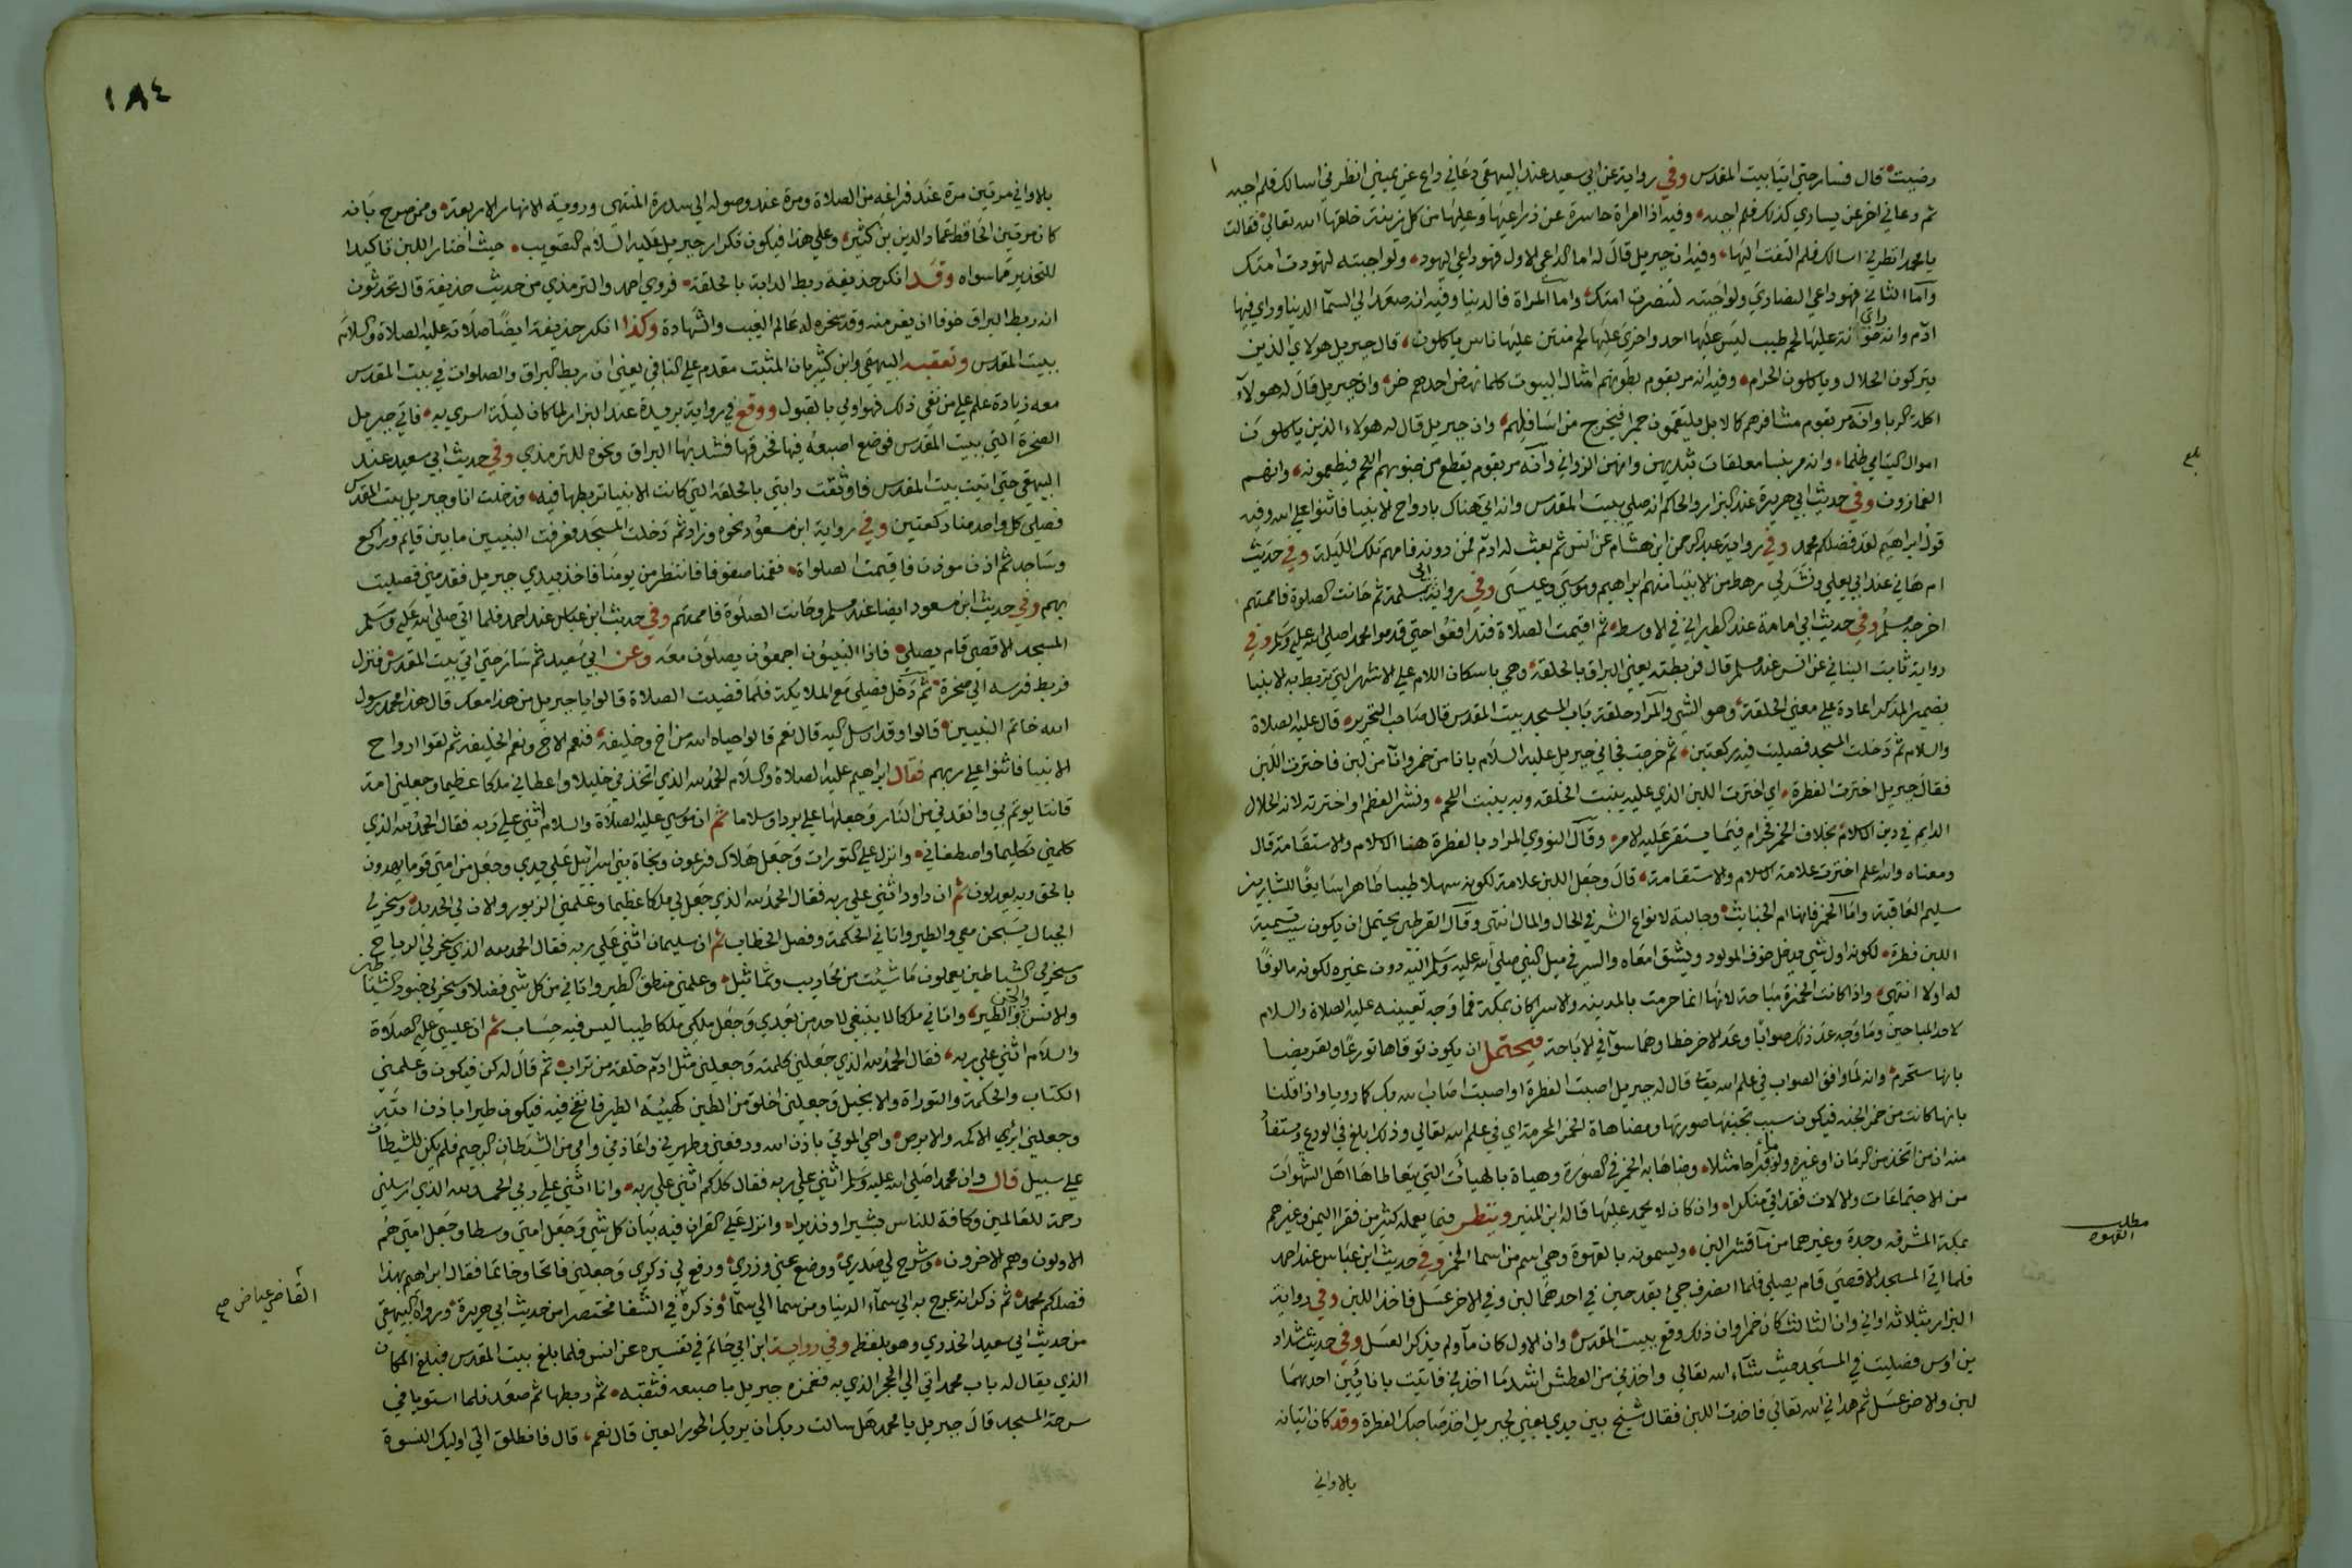 رضيت قال فسار حتي اتيا بيت المقدس وفي رواية عن ابي سعيد عند البيهقي دعاني داع عن يميني انظرني اسالك فلم اجبه
ثم دعاني اخر عن يساري كذلك فلم اجبه وفيه اذا امراة حاسرة عن ذراعيها وعليها من كل زينة خلقها الله تعالي فقالت
يا محمد انظرني اسالك فلم التفت اليها وفيه ان جبريل قال له اما الداعي الاول فهو داعي اليهود ولو اجبته لتهودت امتك
واما الثاني فهو داعي النصاري ولو اجبته لتنصرت امتك واما المراة فالدنيا وفيه انه صعد الي السما الدنيا وراي فيها
ادم وانه راي اخونة عليها لحم طيب ليس عليها احد واخري عليها لحم منتن عليها ناس ياكلون قال جبريل هولاي الذين
يتركون الحلال وياكلون الحرام وفيه انه مر بقوم بطونهم امثال البيوت كلما نهض احدهم خر وان جبريل قال له هولاء
اكلة الربا وانه مر بقوم مشافرهم كالابل يلتقمون جمرا فيخرج من اسافلهم وان جبريل قال له هولاء الذين ياكلون
اموال اليتامي ظلما وانه مر بنسا معلقات بثديهن وانهن الزواني وانه مر بقوم يقطع من جنوبهم اللحم فيطعمونه وانهم
الغمازون وفي حديث ابي هريرة عند البزار والحاكم انه صلي ببيت المقدس وانه اتي هناك بارواح الانبيا فاثنوا علي الله وفيه
قول ابراهيم لقد فضلكم محمد وفي رواية عبد الرحمن ابن هشام عن انس ثم بعث له ادم فمن دونه فامهم تلك الليلة وفي حديث
ام هاني عند ابي يعلي ونشر لي رهط من الانبيا منهم ابراهيم وموسي وعيسي وفي رواية ابي سلمة ثم حانت الصلوة فاممتهم
اخرجه مسلم وفي حديث ابي امامة عند الطبراني في الاوسط ثم اقيمت الصلاة فتدافعوا حتي قدموا محمدا صلي الله عليه وسلم وفي
رواية ثابت البناني عن انس عند مسلم قال فربطته يعني البراق بالحلقة وهي باسكان اللام علي الاشهر التي تربط به الانبيا
بضمير المذكر اعادة علي معني الحلقة وهو الشي والمراد حلقة باب المسجد بيت المقدس قال صاحب التحرير قال عليه الصلاة
والسلام ثم دخلت المسجد فصليت فيه ركعتين ثم خرجت فجاني جبريل عليه السلام بانا من خمر وانا من لبن فاخترت اللبن
فقال جبريل اخترت الفطرة اي اخترت اللبن الذي عليه بنيت الخلقه وبه ينبت اللحم ونشر العظم او اخترته لانه الحلال
الدايم في دين الاسلام بخلاف الخمر فحرام فيما يستقر عليه الامر وقال النووي المراد بالفطرة هنا الاسلام والاستقامة قال
ومعناه والله اعلم اخترت علامة الاسلام والاستقامة قال وجعل اللبن علامة لكونه سهلا طيبا طاهرا سايغا للشاربين
سليم العاقبة واما الخمر فانها ام الخبايث وجالبة لانواع الشر في الحال والمال انتهي وقال القرطبي يحتمل ان يكون سبب تسمية
اللبن فطرة لكونه اول شي يدخل جوف المولود ويشق امعاه والسر في ميل النبي صلي الله عليه وسلم اليه دون غيره لكونه مالوفا
له اولا انتهي واذا كانت الخمرة مباحة لانها انما حرمت بالمدينه والاسرا كان بمكة فما وجه تعيينه عليه الصلاة والسلام
لاحد المباحين وما وجه عد ذلك صوابا وعد الاخر خطا وهما سوا في الاباحة فيحتمل ان يكون توقاها تورعا وتعريضا
بانها ستحرم وانه لما وافق الصواب في علم الله تعالي قال له جبريل اصبت الفطرة او اصبت اصاب الله بك كما رويا واذا قلنا
بانها كانت من خمر الجنه فيكون سبب تجنبها صورتها ومضاهاة الخمر المحرمة اي في علم الله تعالي وذلك ابلغ في الورع ويستفاد
منه ان من اتخذ من الرمان او غيره ولو ماء قراحا مثلا وضاها به الخمر في الصورة وهياه بالهيات التي يتعاطاها اهل الشهوات
من الاجتماعات والالات فقد اتي منكرا وان كان لا يحد عليها قاله ابن المنير وينظر فيما يعمله كثير من فقرا اليمن وغيرهم
بمكة المشرفه وجدة وغيرهما من ما قشر البن ويسمونه بالقهوة وهي اسم من اسما الخمر وفي حديث ابن عباس عند احمد
فلما اتي المسجد الاقصي قام يصلي فلما انصرف جيء بقدحين في احدهما لبن وفي الاخر عسل فاخذ اللبن وفي رواية
البزار بثلاثة اواني وان الثالث كان خمرا وان ذلك وقع ببيت المقدس وان الاول كان ماء ولم يذكر العسل وفي حديث شداد
بن اوس فصليت في المسجد حيث شاء الله تعالي واخذني من العطش اشد ما اخذني فاتيت باناءين احدهما
لبن والاخر عسل ثم هداني الله تعالي فاخذت اللبن فقال شيخ بين يدي يعني لجبريل اخذ صاحبك الفطرة وقد كان اتيانه
بالاواني
بلغ
مطلب
القهوه
١٨٤
بالاواني مرتين مرة عند فراغه من الصلاة ومرة عند وصوله الي سدرة المنتهي ورويه الانهار الاربعة وممن صرح بانه
كان مرتين الحافظ عماد الدين بن كثير وعلي هذا فيكون تكرار جبريل عليه السلام التصويب حيث اختار اللبن تاكيدا
للتحذير مما سواه وقد انكر حذيفة ربط الدابة بالحلقة فروي احمد والترمذي من حديث حذيفة قال تحدثون
انه ربط البراق خوفا ان يفر منه وقد سخره له عالم الغيب والشهادة وكذا انكر حذيفة ايضا صلاته عليه الصلاة والسلام
ببيت المقدس وتعقبه البيهقي وابن كثير بان المثبت مقدم علي النافي يعني ان ربط البراق والصلوات في بيت المقدس
معه زيادة علم علي من نفي ذلك فهو اولي بالقبول ووقع في رواية بريدة عند البزار لما كان ليلة اسري به فاتي جبريل
الصخرة التي ببيت المقدس فوضع اصبعه فيها فخرقها فشد بها البراق ونحوه للترمذي وفي حديث ابي سعيد عند
البيهقي حتي اتيت بيت المقدس فاوثقت دابتي بالحلقة التي كانت الانبيا تربطها فيه فدخلت انا وجبريل بيت المقدس
فصلي كل واحد منا ركعتين وفي رواية ابن مسعود نحوه وزاد ثم دخلت المسجد فعرفت النبيين ما بين قايم وراكع
وساجد ثم اذن موذن فاقيمت الصلواة فقمنا صفوفا فانتظر من يومنا فاخذ بيدي جبريل فقدمني فصليت
بهم وفي حديث ابن مسعود ايضا عند مسلم وحانت الصلوة فاممتهم وفي حديث ابن عباس عند احمد فلما اتي صلي الله عليه وسلم
المسجد الاقصي قام يصلي فاذا النبيون اجمعون يصلون معه وعن ابي سعيد ثم سار حتي اتي بيت المقدس فنزل
فربط فرسه الي صخرة ثم دخل فصلي مع الملايكة فلما قضيت الصلاة قالوا يا جبريل من هذا معك قال هذا محمد رسول
الله خاتم النبيين قالوا وقد ارسل اليه قال نعم قالوا حياه الله من اخ وخليفة فنعم الاخ ونعم الخليفه ثم لقوا ارواح
الانبيا فاثنوا علي ربهم فقال ابراهيم عليه الصلاة والسلام الحمد لله الذي اتخذني خليلا واعطاني ملكا عظيما وجعلني امة
قانتا يوتم بي وانقذني من النار وجعلها علي بردا وسلاما ثم ان موسي عليه الصلاة والسلام اثني علي ربه فقال الحمد لله الذي
كلمني تكليما واصطفاني وانزل علي التورات وجعل هلاك فرعون ونجاة بني اسرائيل علي يدي وجعل من امتي قوما يهدون
بالحق وبه يعدلون ثم ان داود اثني علي ربه فقال الحمد لله الذي جعل لي ملكا عظيما وعلمني الزبور والان لي الحديد وسخر لي
الجبال يسبحن معي والطير واتاني الحكمة وفصل الخطاب ثم ان سليمان اثني علي ربه فقال الحمد لله الذي سخر لي الرياح
وسخر لي الشياطين يعملون ما شيئت من محاريب وتماثيل وعلمني منطق الطير واتاني من كل شي فضلا وسخر لي جنود الشياطين
والانس والجن والطير واتاني ملكا لا ينبغي لاحد من بعدي وجعل ملكي ملكا طيبا ليس فيه حساب ثم ان عيسي عليه الصلاة
والسلام اثني علي ربه فقال الحمد لله الذي جعلني كلمته وجعلني مثل ادم خلقه من تراب ثم قال له كن فيكون وعلمني
الكتاب والحكمة والتوراة والانجيل وجعلني اخلق من الطين كهيئة الطير فانفخ فيه فيكون طيرا باذن الله
وجعلني ابري الاكمه والابرص واحي الموتي باذن الله ورفعني وطهرني واعاذني وامي من الشيطان الرجيم فلم يكن للشيطان
علي سبيل قال وان محمدا صلي الله عليه وسلم اثني علي ربه فقال كلكم اثني علي ربه وانا اثني علي ربي الحمد لله الذي ارسلني
رحمة للعالمين وكافة للناس بشيرا ونذيرا وانزل علي القران فيه تبيان كل شي وجعل امتي وسطا وجعل امتي هم
الاولون وهم الاخرون وشرح لي صدري ووضع عني وزري ورفع لي ذكري وجعلني فاتحا وخاتما فقال ابراهيم بهذا
فضلكم محمد ثم ذكر انه عرج به الي سماء الدنيا ومن سما الي سما وذكره في الشفا مختصرا من حديث ابي هريرة ورواه البيهقي
من حديث ابي سعيد الخدري وهو بلفظه وفي رواية ابن ابي حاتم في تفسيره عن انس فلما بلغ بيت المقدس فبلغ المكان
الذي يقال له باب محمد اتي الي الحجر الذي به فغمزه جبريل باصبعه فثقبه ثم ربطها ثم صعد فلما استويا في
سرحة المسجد قال جبريل يا محمد هل سالت ربك ان يريك الحور العين قال نعم قال فانطلق الي اوليك النسوة
القاضي عياض صح